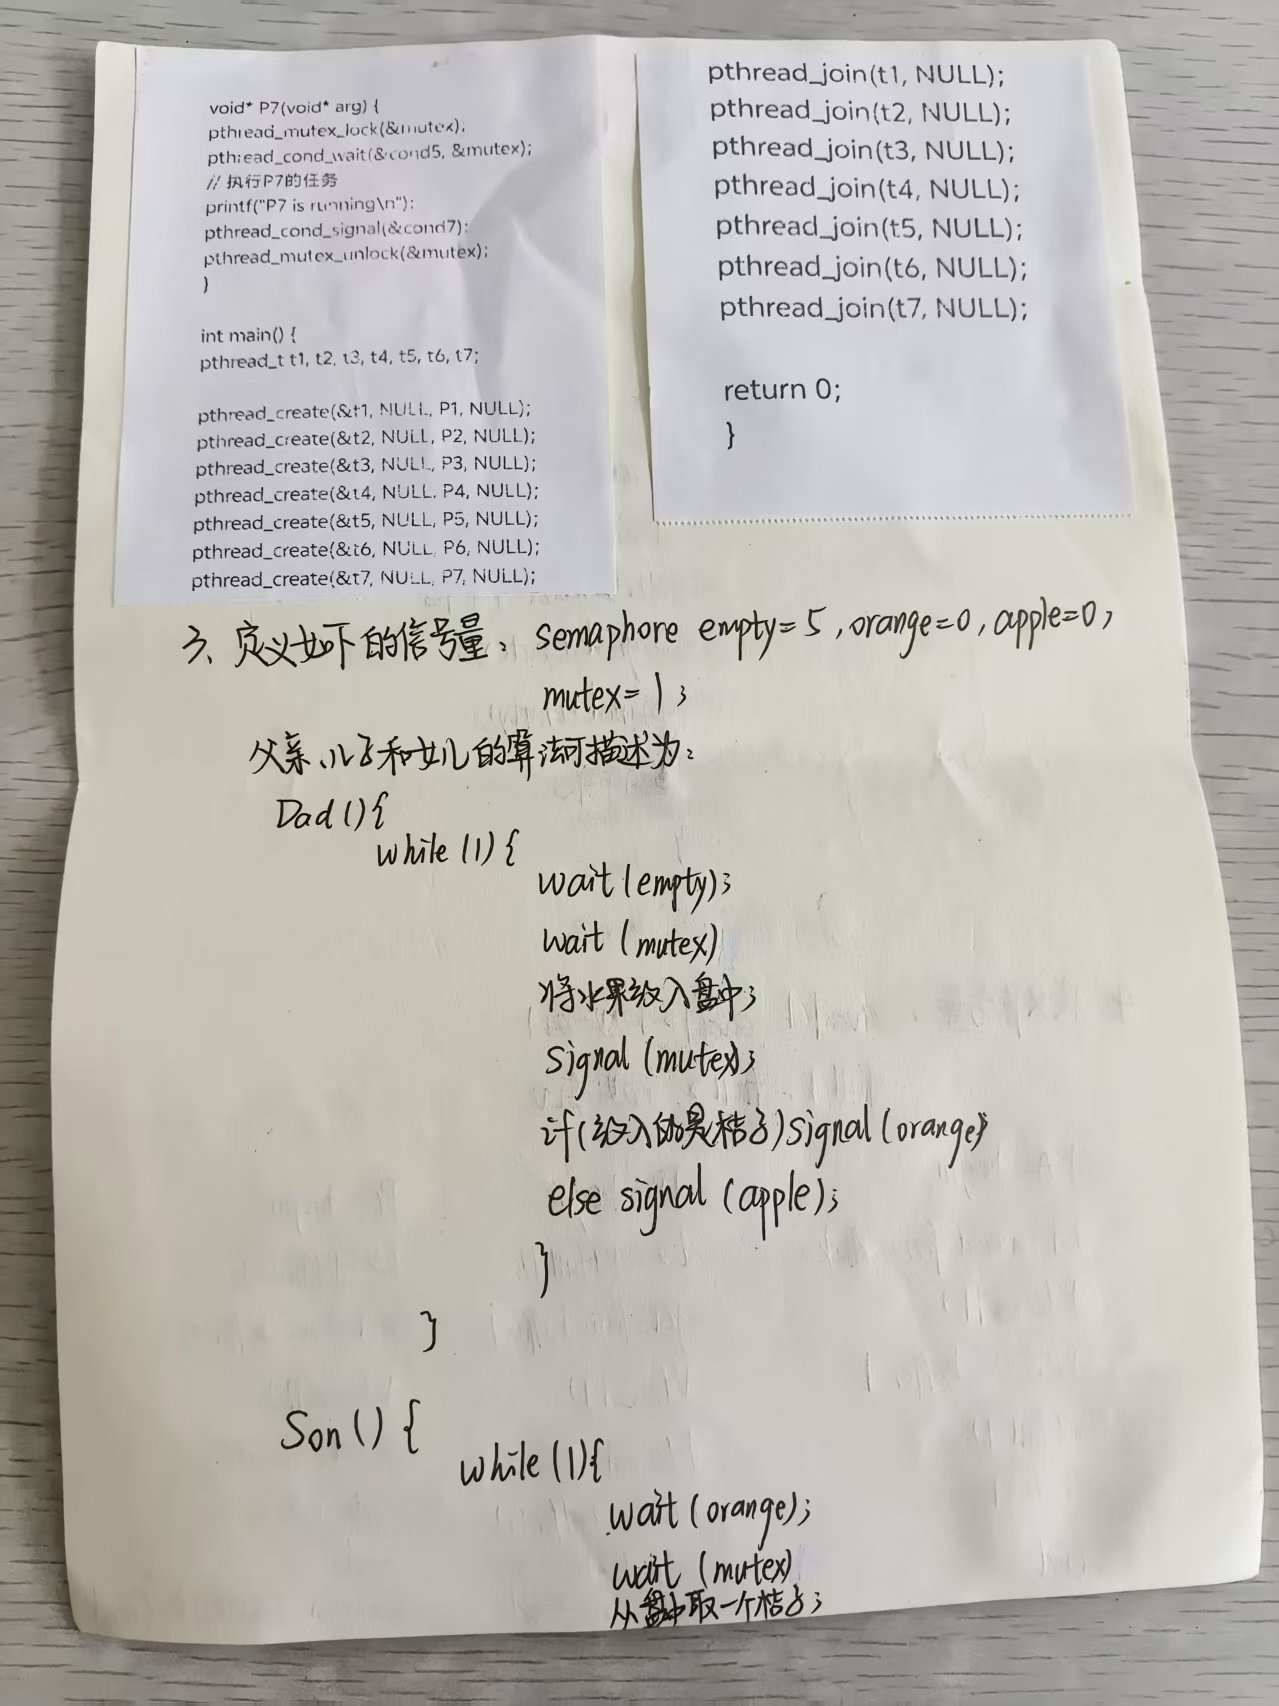 void* P7(void* arg) {
pthread_mutex_lock(&mutex);
pthread_cond_wait(&cond5, &mutex);
// 执行P7的任务
printf("P7 is running\n");
pthread_cond_signal(&cond7);
pthread_mutex_unlock(&mutex);
}
int main() {
pthread_t t1, t2, t3, t4, t5, t6, t7;
pthread_create(&t1, NULL, P1, NULL);
pthread_create(&t2, NULL, P2, NULL);
pthread_create(&t3, NULL, P3, NULL);
pthread_create(&t4, NULL, P4, NULL);
pthread_create(&t5, NULL, P5, NULL);
pthread_create(&t6, NULL, P6, NULL);
pthread_create(&t7, NULL, P7, NULL);
pthread_join(t1, NULL);
pthread_join(t2, NULL);
pthread_join(t3, NULL);
pthread_join(t4, NULL);
pthread_join(t5, NULL);
pthread_join(t6, NULL);
pthread_join(t7, NULL);
return 0;
}
3、定义如下的信号量: semaphore empty=5, orange=0, apple=0,
mutex=1;
父亲、儿子和女儿的算法可描述为:
Dad(){
while(1){
wait(empty);
wait(mutex)
将水果放入盘中;
signal(mutex);
if(放入的是桔子)signal(orange)
else signal(apple);
}
}
Son(){
while(1){
wait(orange);
wait(mutex)
从盘中取一个桔子;